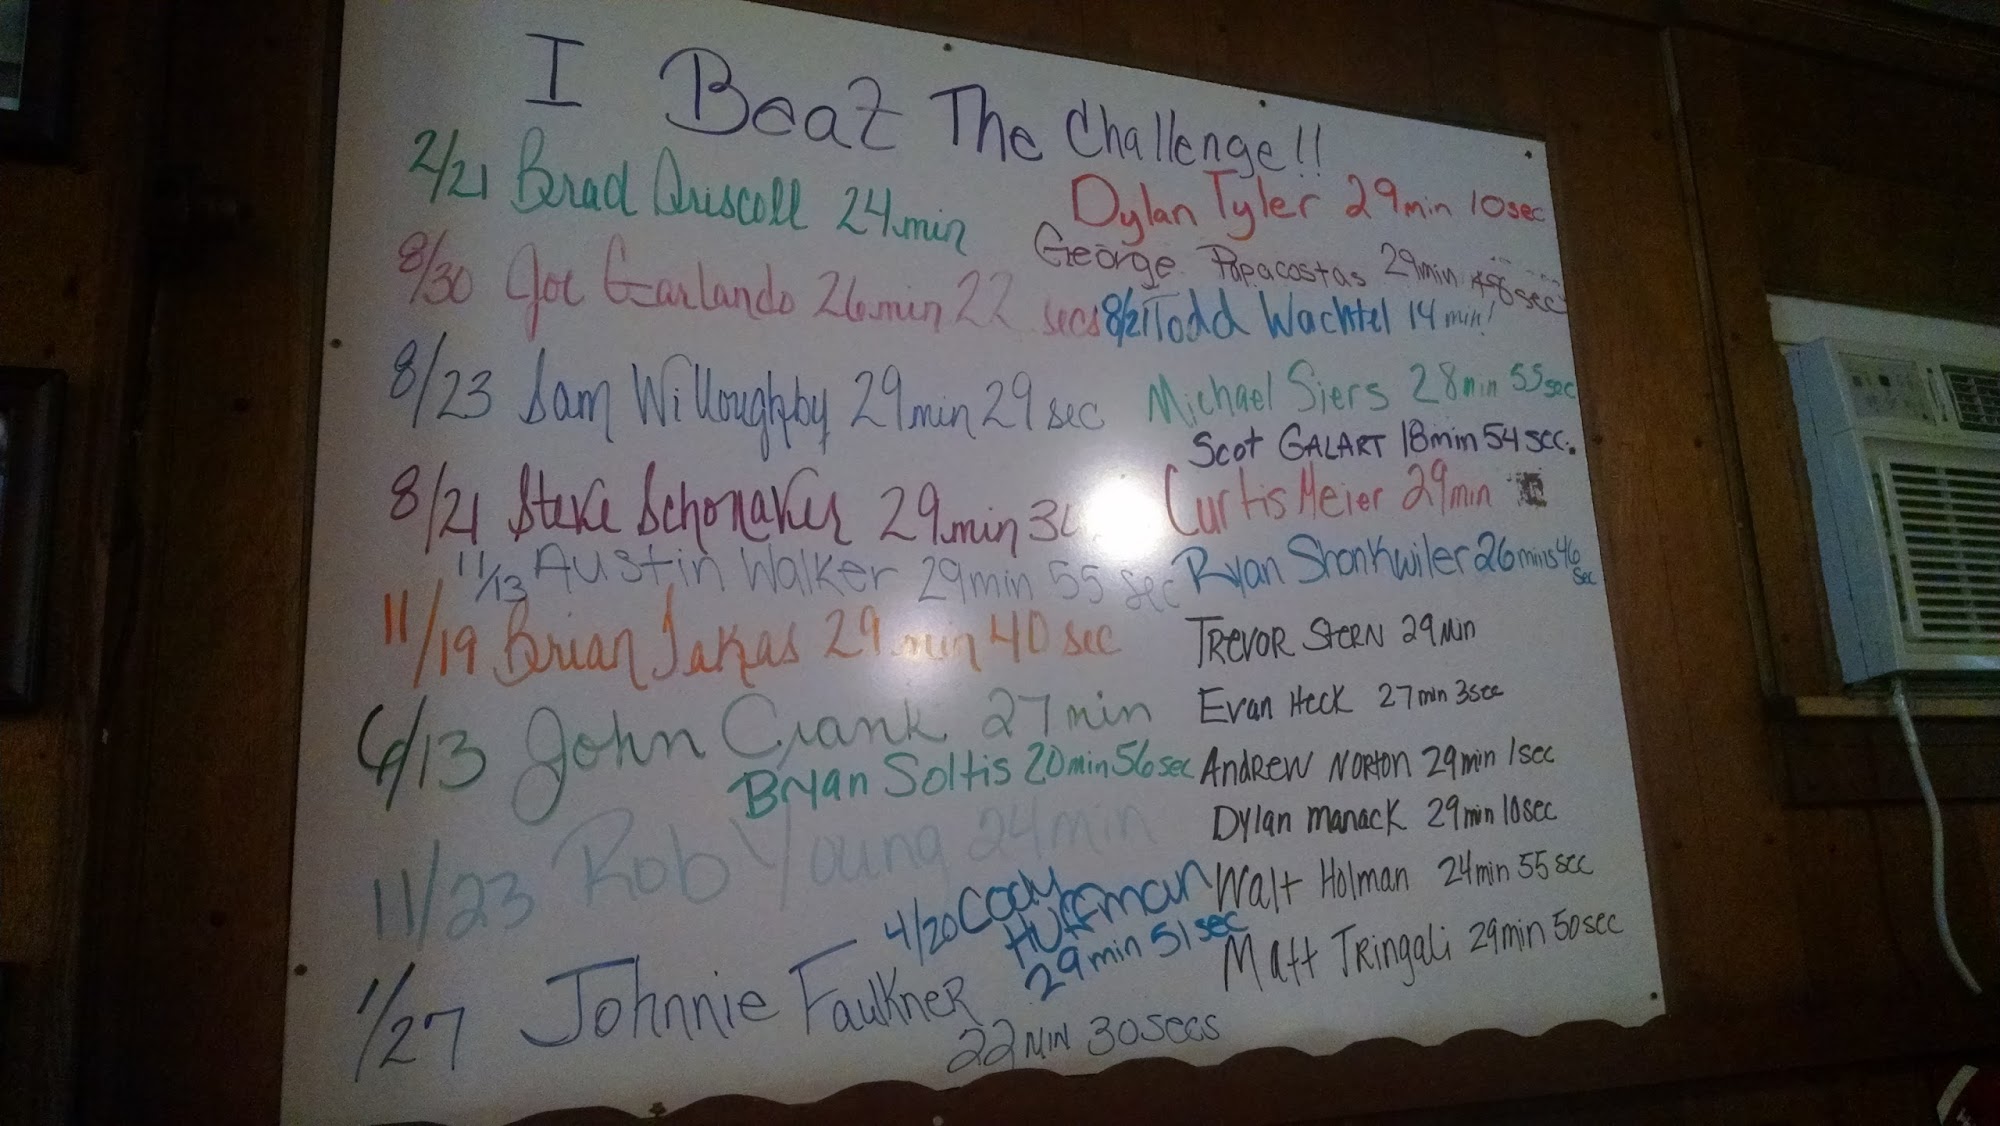 I Beat The Challenge!!
2/21 Brad Driscoll 24min
8/30 Joe Garlando 26min 22 secs
8/23 Sam Willoughby 29min 29 sec
8/21 Steve Schonaver 29min
11/13 Austin Walker 29min 55 sec
11/19 Brian Jakas 29 min 40 sec
6/13 John Crank 27min
Bryan Soltis 20min 56sec
11/23 Rob Young 24min
4/20 Cody
Huffman
29min 51 sec
1/27 Johnnie Faulkner
22 MIN 30 SECS
Dylan Tyler 29min 10sec
George Papacostas 29min 48sec
8/21 Todd Wachtel 14min!
Michael Siers 28min 55sec
Scot GALART 18min 54 sec.
Curtis Meier 29min
Ryan Shonkwiler 26mins 46
sec
TREVOR STERN 29MIN
Evan Heck 27min 3sec
ANDREW NORTON 29min 1sec
Dylan Manack 29min 10sec
Walt Holman 24min 55sec
Matt Tringali 29min 50sec